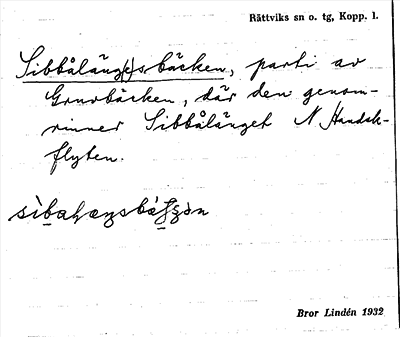 Rättviks sn o. tg, Kopp. l.
Sibboläng(e)sbäcken, parti av
Gruvbäcken, där den genom-
rinner Sibbolänget N Handsk-
flyten.
Bror Lindén 1932